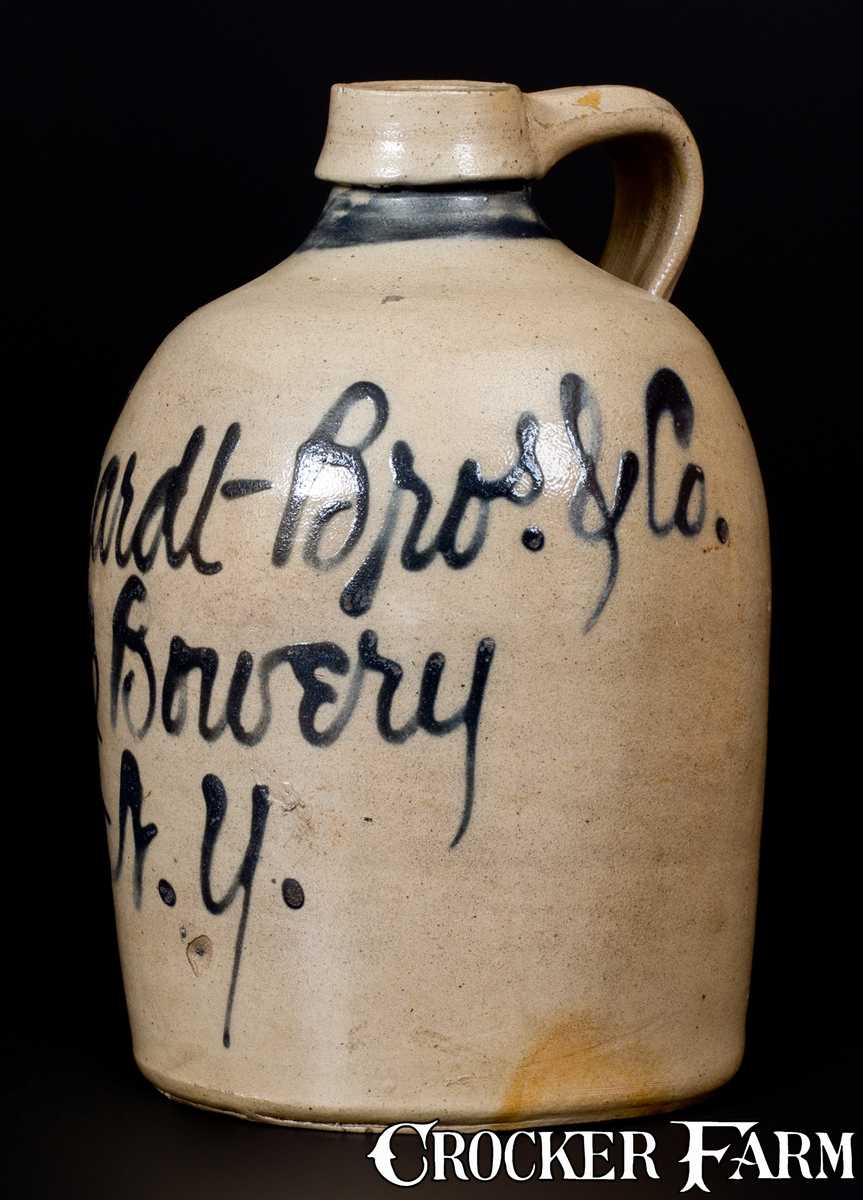 ardt Bros. & Co.
Bowery
N.Y.
CROCKER FARM